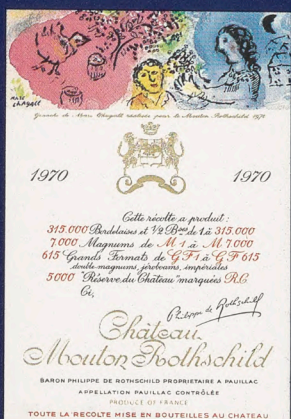 MARC
CHAGALL
Gouache de Marc Chagall réalisée pour le Mouton Rothschild 1970
1970 1970
Cette récolte a produit :
315.000 Bordelaises et ½ Bses de 1 à 315.000
7.000 Magnums de M 1 à M 7.000
615 Grands Formats de G F 1 à G F 615
double-magnums, jéroboams, impériales
5000 "Réserve du Château" marquées R.C.
Ci,
Philippe de Rothschild
Château
Mouton Rothschild
BARON PHILIPPE DE ROTHSCHILD PROPRIÉTAIRE A PAUILLAC
APPELLATION PAUILLAC CONTRÔLÉE
PRODUCE OF FRANCE
TOUTE LA RÉCOLTE MISE EN BOUTEILLES AU CHÂTEAU